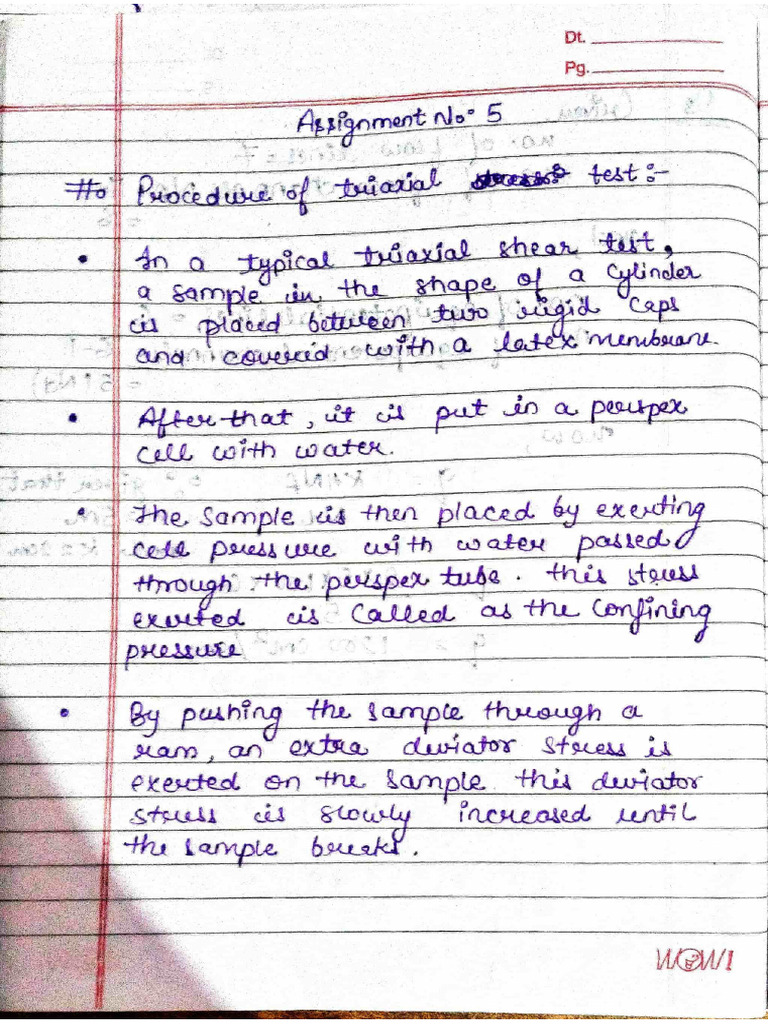 Dt.
Pg.
Assignment No. 5
#. Procedure of triaxial test:-
• In a typical triaxial shear test,
a sample in the shape of a cylinder
is placed between two rigid caps
and covered with a latex membrane.
• After that, it is put in a perspex
cell with water.
• The sample is then placed by exerting
cell pressure with water passed
through the perspex tube. This stress
exerted is called as the confining
pressure
• By pushing the sample through a
ram, an extra deviator stress is
exerted on the sample this deviator
stress is slowly increased until
the sample breaks.
WOW!